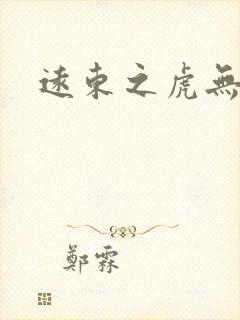 遠東之虎無
鄭霖